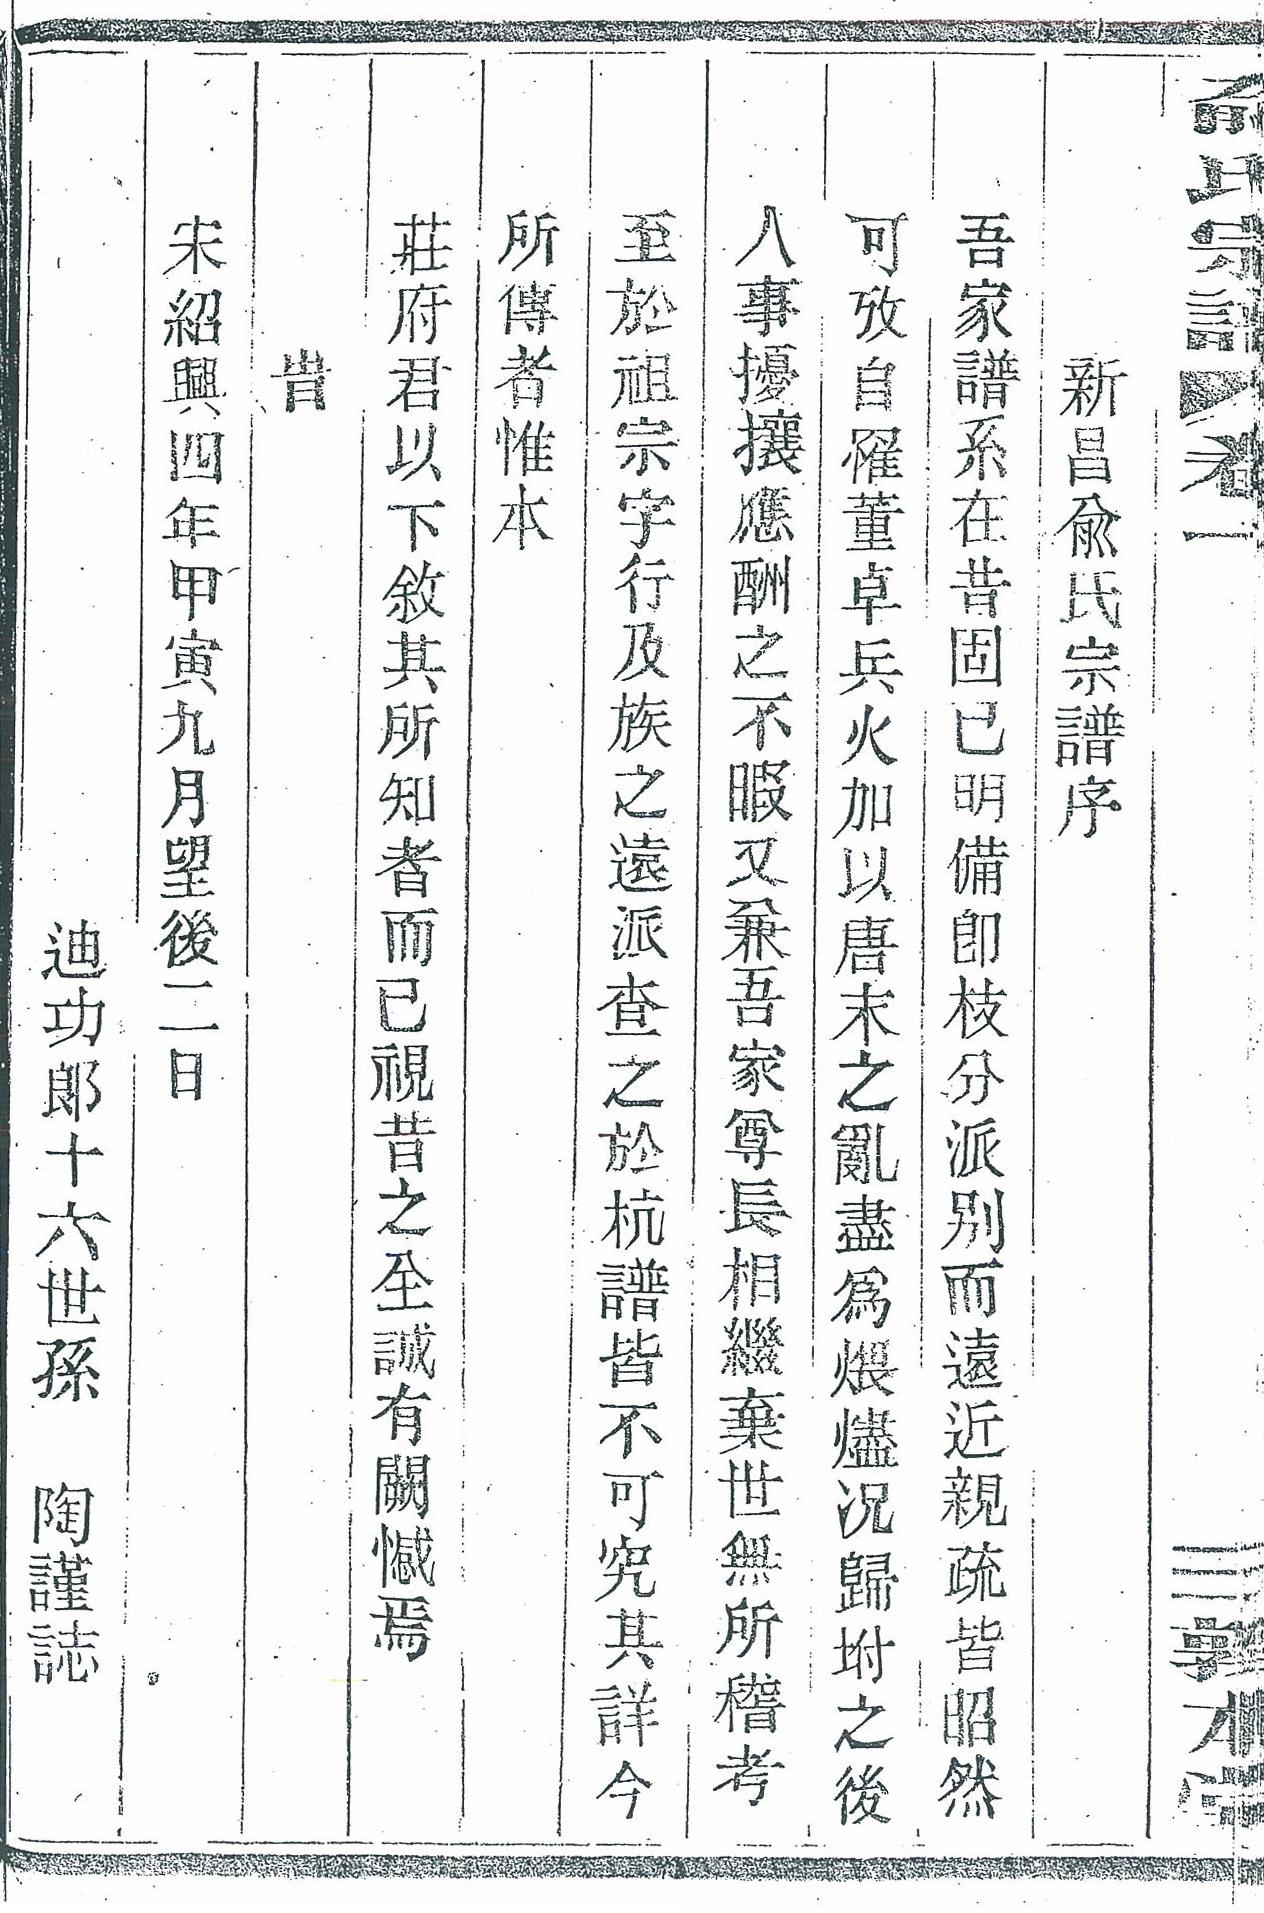 俞氏宗譜 卷一 三 敦本堂
新昌俞氏宗譜序
吾家譜系在昔固已明備卽枝分派別而遠近親疏皆昭然
可攷自罹董卓兵火加以唐末之亂盡爲煨燼况歸坿之後
人事擾攘應酬之不暇又兼吾家尊長相繼棄世無所稽考
至於祖宗字行及族之遠派查之於杭譜皆不可究其詳今
所傳者惟本
莊府君以下敘其所知者而已視昔之全誠有闕憾焉
旹
宋紹興四年甲寅九月望後二日
迪功郎十六世孫 陶謹誌